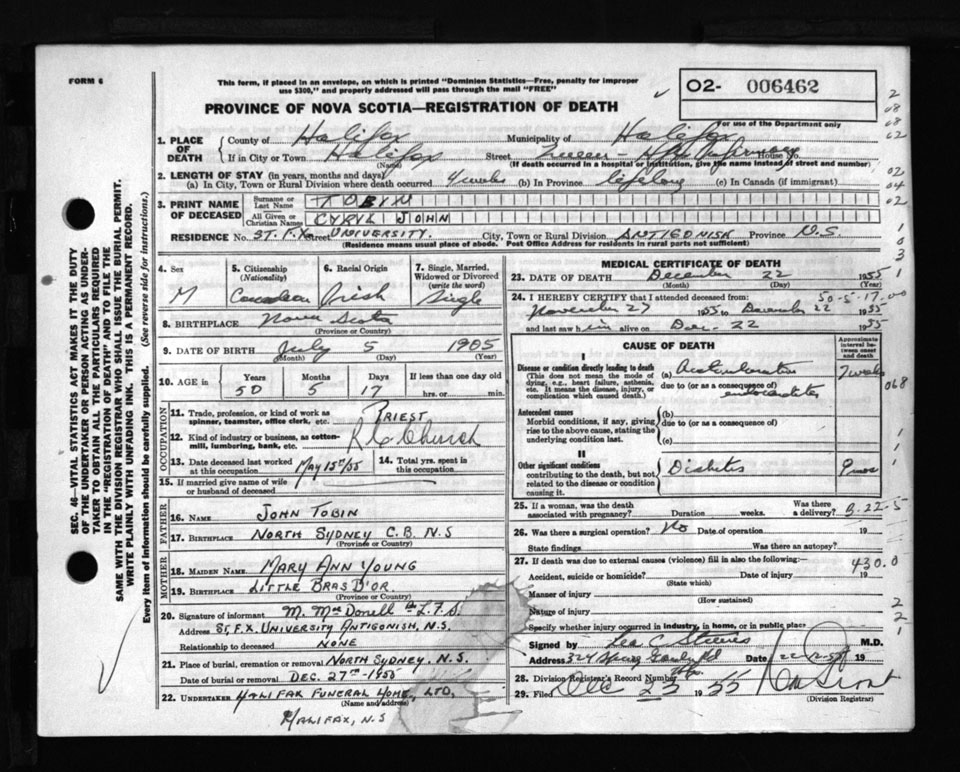 FORM 6
This form, if placed in an envelope, on which is printed "Dominion Statistics—Free, penalty for improper
use $300," and properly addressed will pass through the mail "FREE"
PROVINCE OF NOVA SCOTIA—REGISTRATION OF DEATH
02- 006462
For use of the Department only
1. PLACE OF DEATH
County of Halifax Municipality of Halifax
If in City or Town Halifax Street Queen - Hfx Infirmary House No
(Name) (If death occurred in a hospital or institution, give the name instead of street and number)
2. LENGTH OF STAY (in years, months and days)
(a) In City, Town or Rural Division where death occurred 4 weeks (b) In Province lifelong (c) In Canada (if immigrant)
3. PRINT NAME OF DECEASED
Surname or Last Name TOBIN
All Given or Christian Names CYRIL JOHN
RESIDENCE No. ST. F.X. Street UNIVERSITY. City, Town or Rural Division ANTIGONISH Province N.S.
(Residence means usual place of abode. Post Office Address for residents in rural parts not sufficient)
4. Sex M
5. Citizenship (Nationality) Canadian
6. Racial Origin Irish
7. Single, Married, Widowed or Divorced (write the word) Single
8. BIRTHPLACE Nova Scotia
(Province or Country)
9. DATE OF BIRTH July 5 1905
(Month) (Day) (Year)
10. AGE in Years 50 Months 5 Days 17 If less than one day old hrs. or min.
OCCUPATION
11. Trade, profession, or kind of work as spinner, teamster, office clerk, etc. PRIEST
12. Kind of industry or business, as cotton-mill, lumbering, bank, etc. R.C. Church
13. Date deceased last worked at this occupation MAY 15TH/55
14. Total yrs. spent in this occupation
15. If married give name of wife or husband of deceased
FATHER
16. NAME JOHN TOBIN
17. BIRTHPLACE NORTH SYDNEY C.B. N.S
(Province or Country)
MOTHER
18. MAIDEN NAME MARY ANN YOUNG
19. BIRTHPLACE LITTLE BRAS D'OR
(Province or Country)
20. Signature of informant M. MacDonell
Address ST. F.X. UNIVERSITY ANTIGONISH, N.S.
Relationship to deceased NONE
21. Place of burial, cremation or removal NORTH SYDNEY. N.S.
Date of burial or removal DEC. 27TH-1955
22. UNDERTAKER HALIFAX FUNERAL HOME, LTD,
(Name and address)
HALIFAX, N.S
MEDICAL CERTIFICATE OF DEATH
23. DATE OF DEATH December 22 1955
(Month) (Day) (Year)
50-5-17-00
24. I HEREBY CERTIFY that I attended deceased from:
November 27 1955 to December 22 1955
and last saw him alive on Dec- 22 1955
CAUSE OF DEATH
Approximate interval between onset and death
I
Disease or condition directly leading to death
(This does not mean the mode of dying, e.g., heart failure, asthenia, etc. It means the disease, injury, or complication which caused death.)
(a)
due to (or as a consequence of) endocarditis
7 weeks
068
Antecedent causes
Morbid conditions, if any, giving rise to the above cause, stating the underlying condition last.
(b)
due to (or as a consequence of)
(c)
II
Other significant conditions contributing to the death, but not related to the disease or condition causing it.
Diabetes
25. If a woman, was the death associated with pregnancy? Duration weeks. Was there a delivery? B-22-5
26. Was there a surgical operation? No Date of operation 19
State findings Was there an autopsy?
27. If death was due to external causes (violence) fill in also the following:— 430.0
Accident, suicide or homicide? Date of injury 19
(State which)
Manner of injury
(How sustained)
Nature of injury
Specify whether injury occurred in industry, in home, or in public place
Signed by M.D.
Address 324 Date 19
28. Division Registrar's Record Number
29. Filed Dec 23 1955
(Division Registrar)
SEC. 46—VITAL STATISTICS ACT MAKES IT THE DUTY
OF THE UNDERTAKER OR PERSON ACTING AS UNDER-
TAKER TO OBTAIN ALL THE PARTICULARS REQUIRED
IN THE "REGISTRATION OF DEATH" AND TO FILE THE
SAME WITH THE DIVISION REGISTRAR WHO SHALL ISSUE THE BURIAL PERMIT.
WRITE PLAINLY WITH UNFADING INK. THIS IS A PERMANENT RECORD.
Every item of information should be carefully supplied. (See reverse side for instructions.)
2
08
68
62
02
04
02
1
0
3
1
1
1
2
2
1